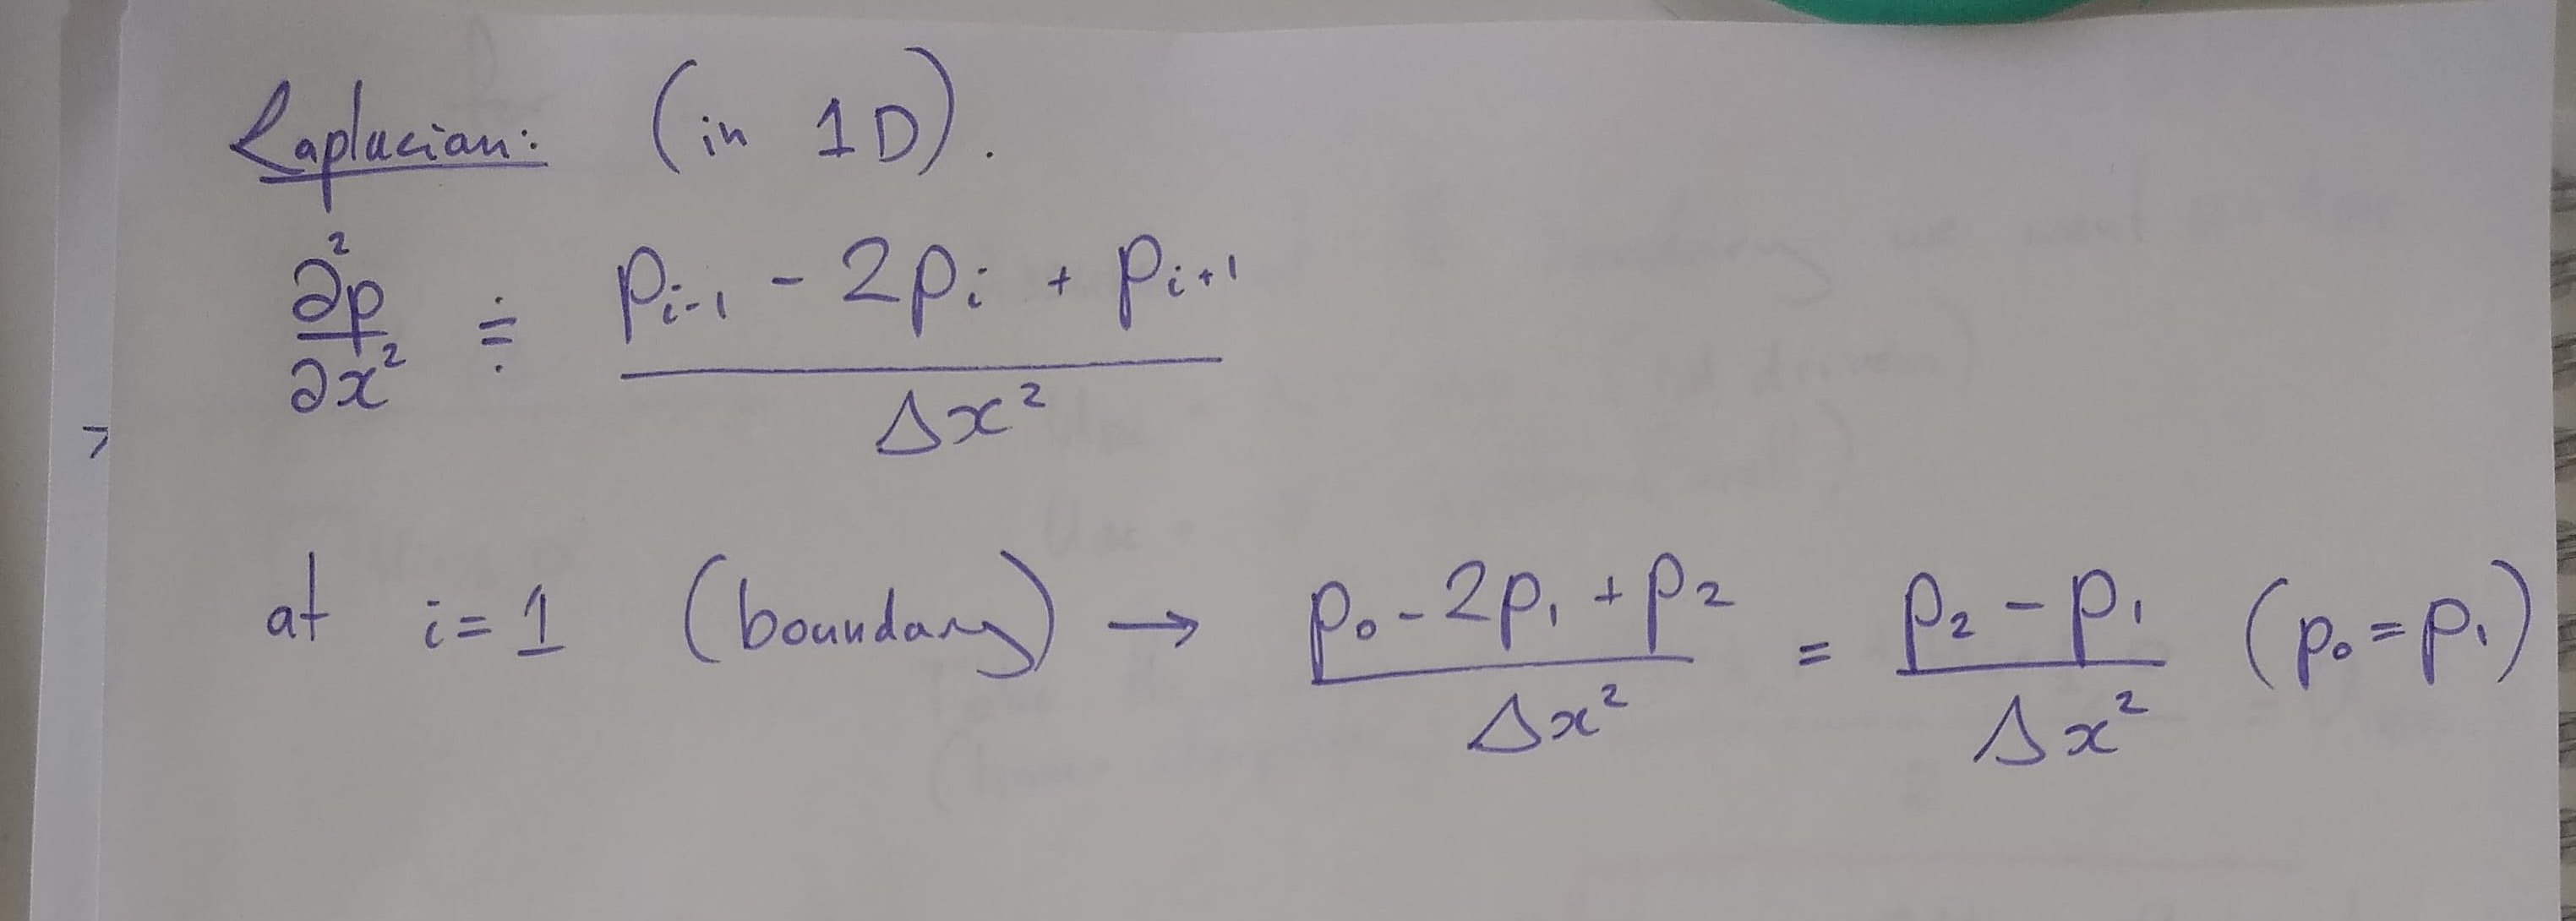 Laplacian: (in 1D).
∂²p/∂x² ≑ (pᵢ₋₁ - 2pᵢ + pᵢ₊₁)/Δx²
at i=1 (boundary) → (p₀ - 2p₁ + p₂)/Δx² = (p₂ - p₁)/Δx² (p₀=p₁)